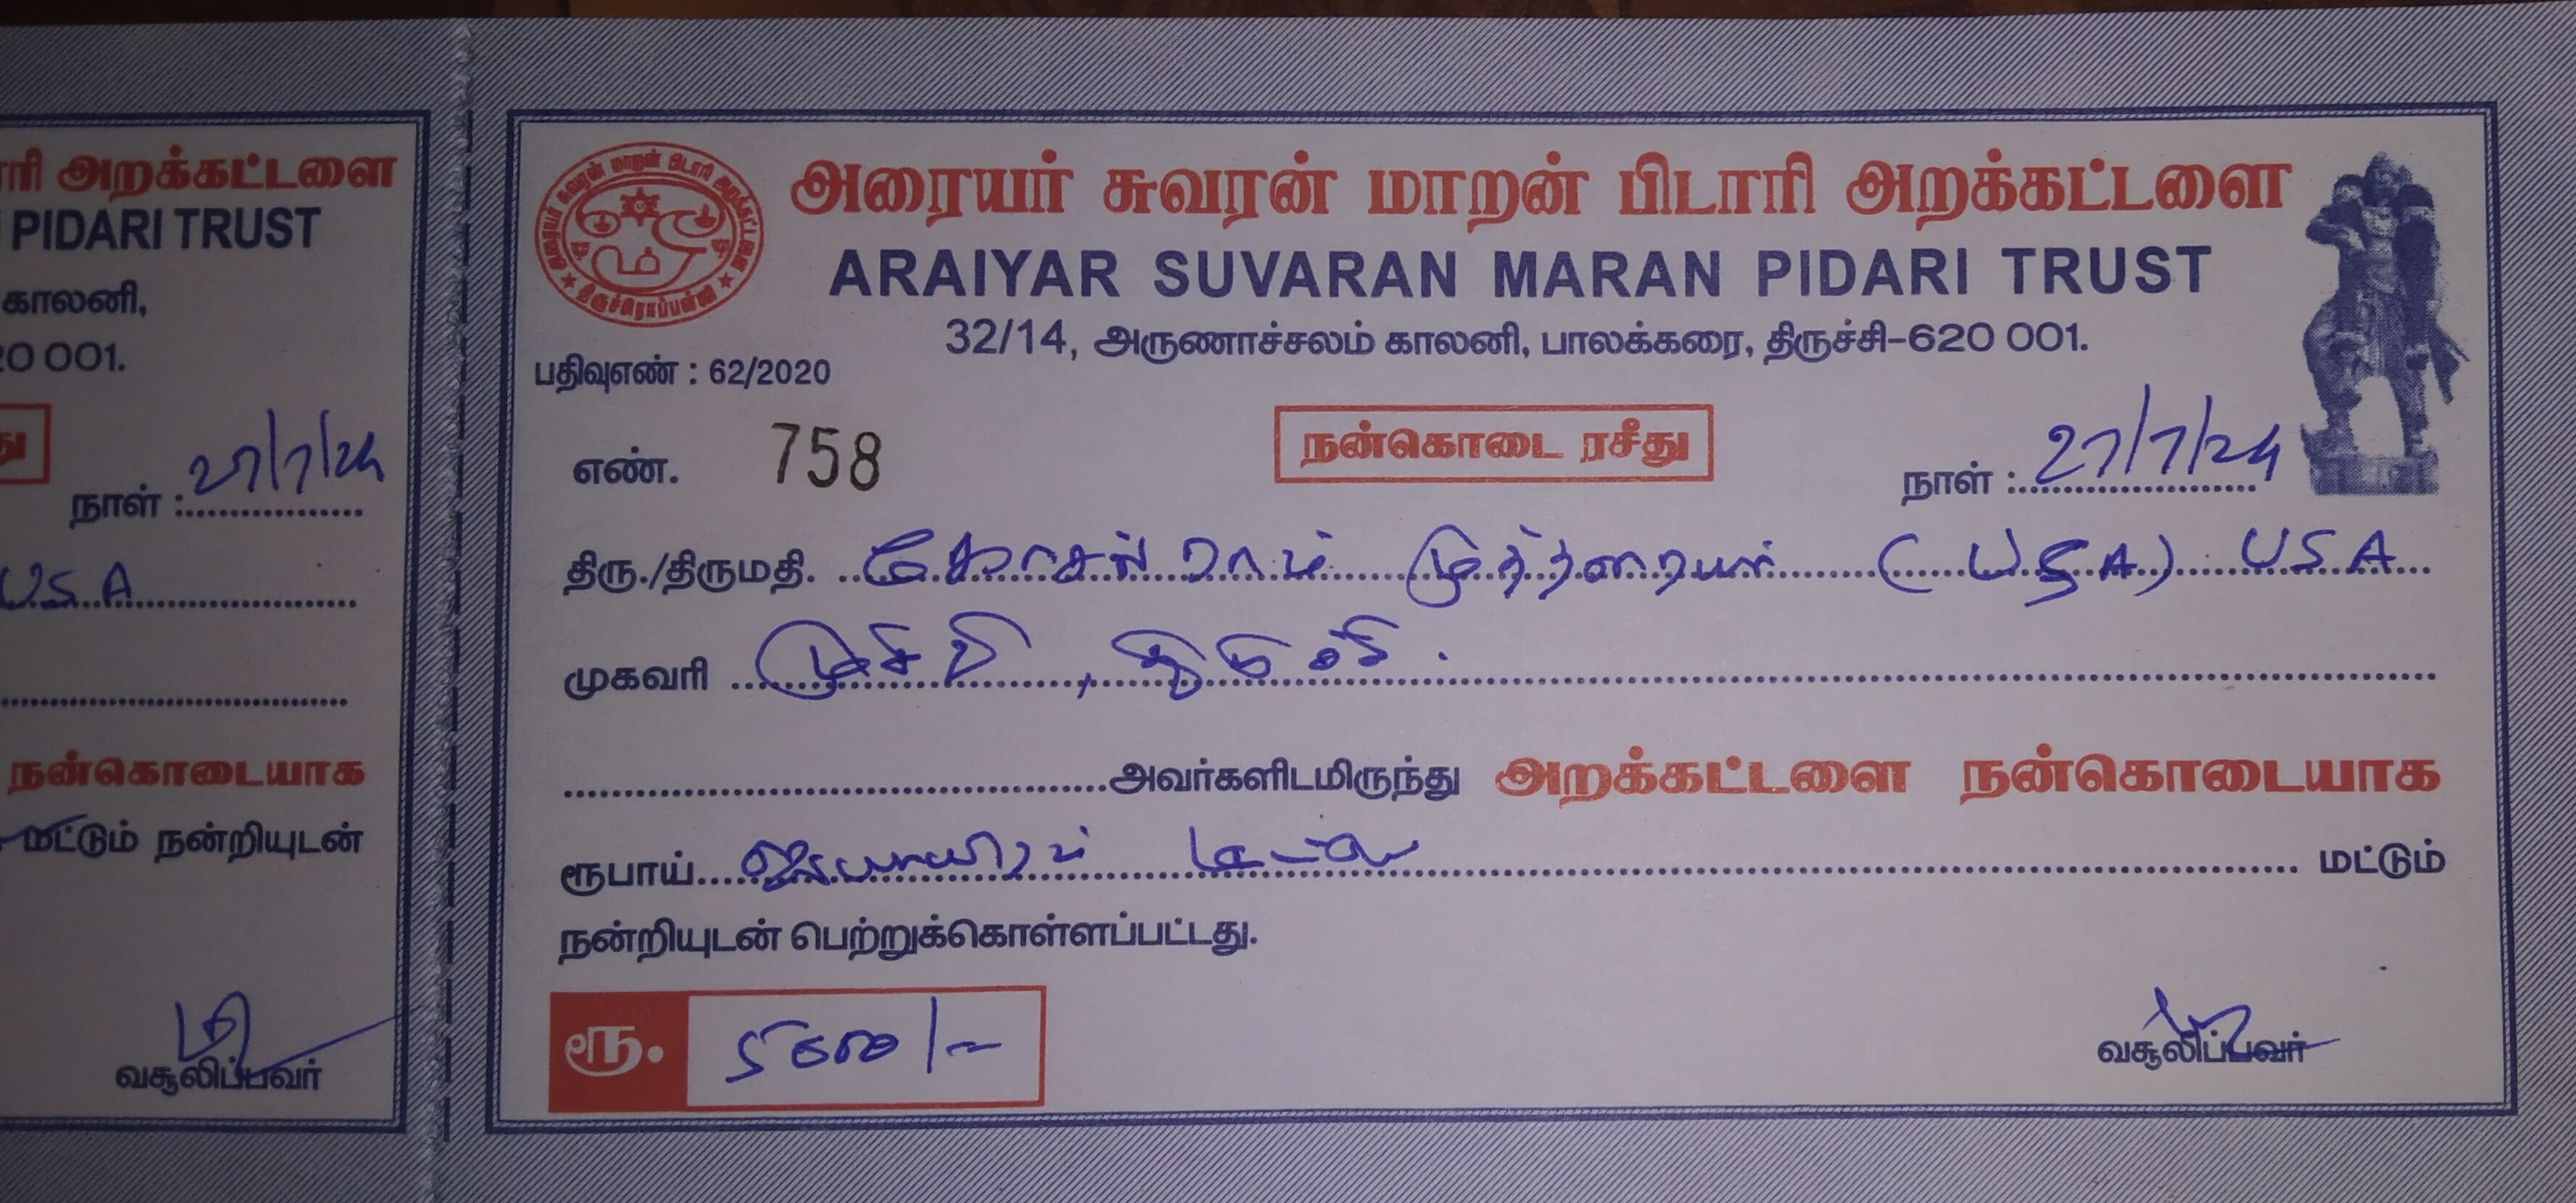 ரி அறக்கட்டளை
PIDARI TRUST
காலனி,
20 001.
து
நாள் : 27/7/24
USA
நன்கொடையாக
மட்டும் நன்றியுடன்
வசூலிப்பவர்
அரையர் சுவரன் மாறன் பிடாரி அறக்கட்டளை
திருச்சிராப்பள்ளி
அரையர் சுவரன் மாறன் பிடாரி அறக்கட்டளை
ARAIYAR SUVARAN MARAN PIDARI TRUST
32/14, அருணாச்சலம் காலனி, பாலக்கரை, திருச்சி-620 001.
பதிவுஎண் : 62/2020
எண். 758 நன்கொடை ரசீது நாள் : 27/7/24
திரு./திருமதி. கோசல்ராம் முத்தரையர் (USA) USA
முகவரி முசிறி, திருச்சி.
அவர்களிடமிருந்து அறக்கட்டளை நன்கொடையாக
ரூபாய் ஐயாயிரம் மட்டும் மட்டும்
நன்றியுடன் பெற்றுக்கொள்ளப்பட்டது.
ரூ. 5000/-
வசூலிப்பவர்